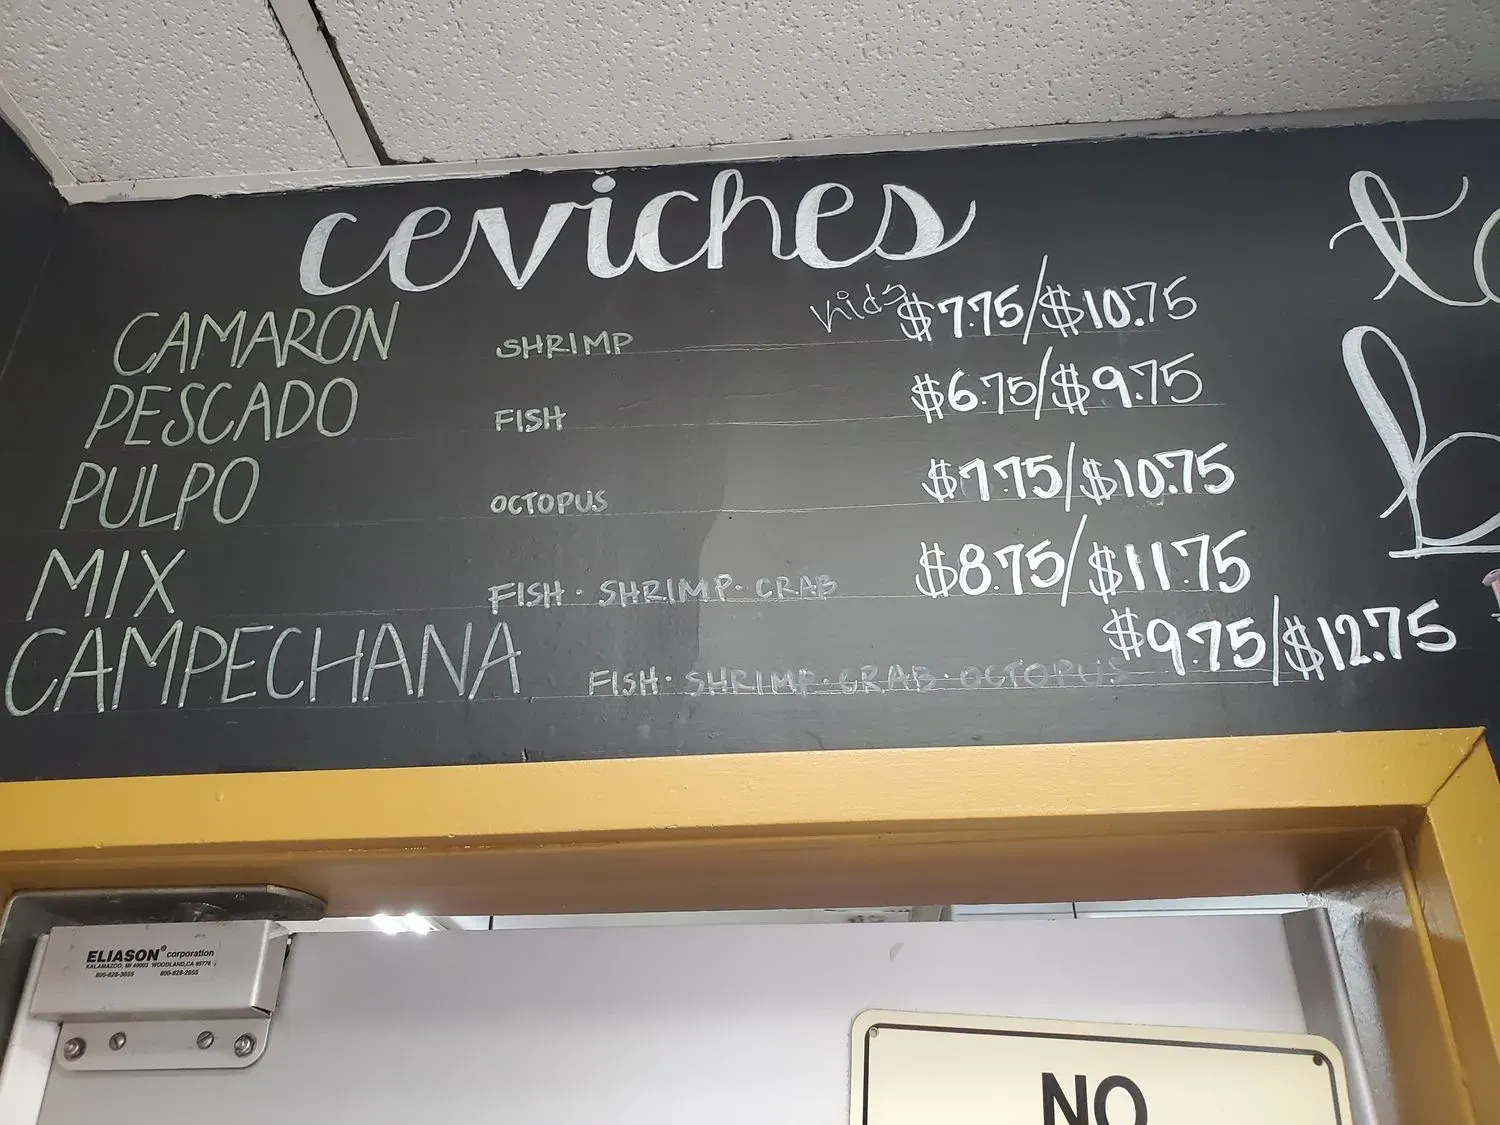 ceviches
CAMARON SHRIMP kids $7.75/$10.75
PESCADO FISH $6.75/$9.75
PULPO OCTOPUS $7.75/$10.75
MIX FISH · SHRIMP · CRAB $8.75/$11.75
CAMPECHANA FISH · SHRIMP · CRAB · OCTOPUS $9.75/$12.75
ELIASON® corporation
KALAMAZOO, MI 49003 WOODLAND, CA 95776
800-828-3655 800-828-2655
NO